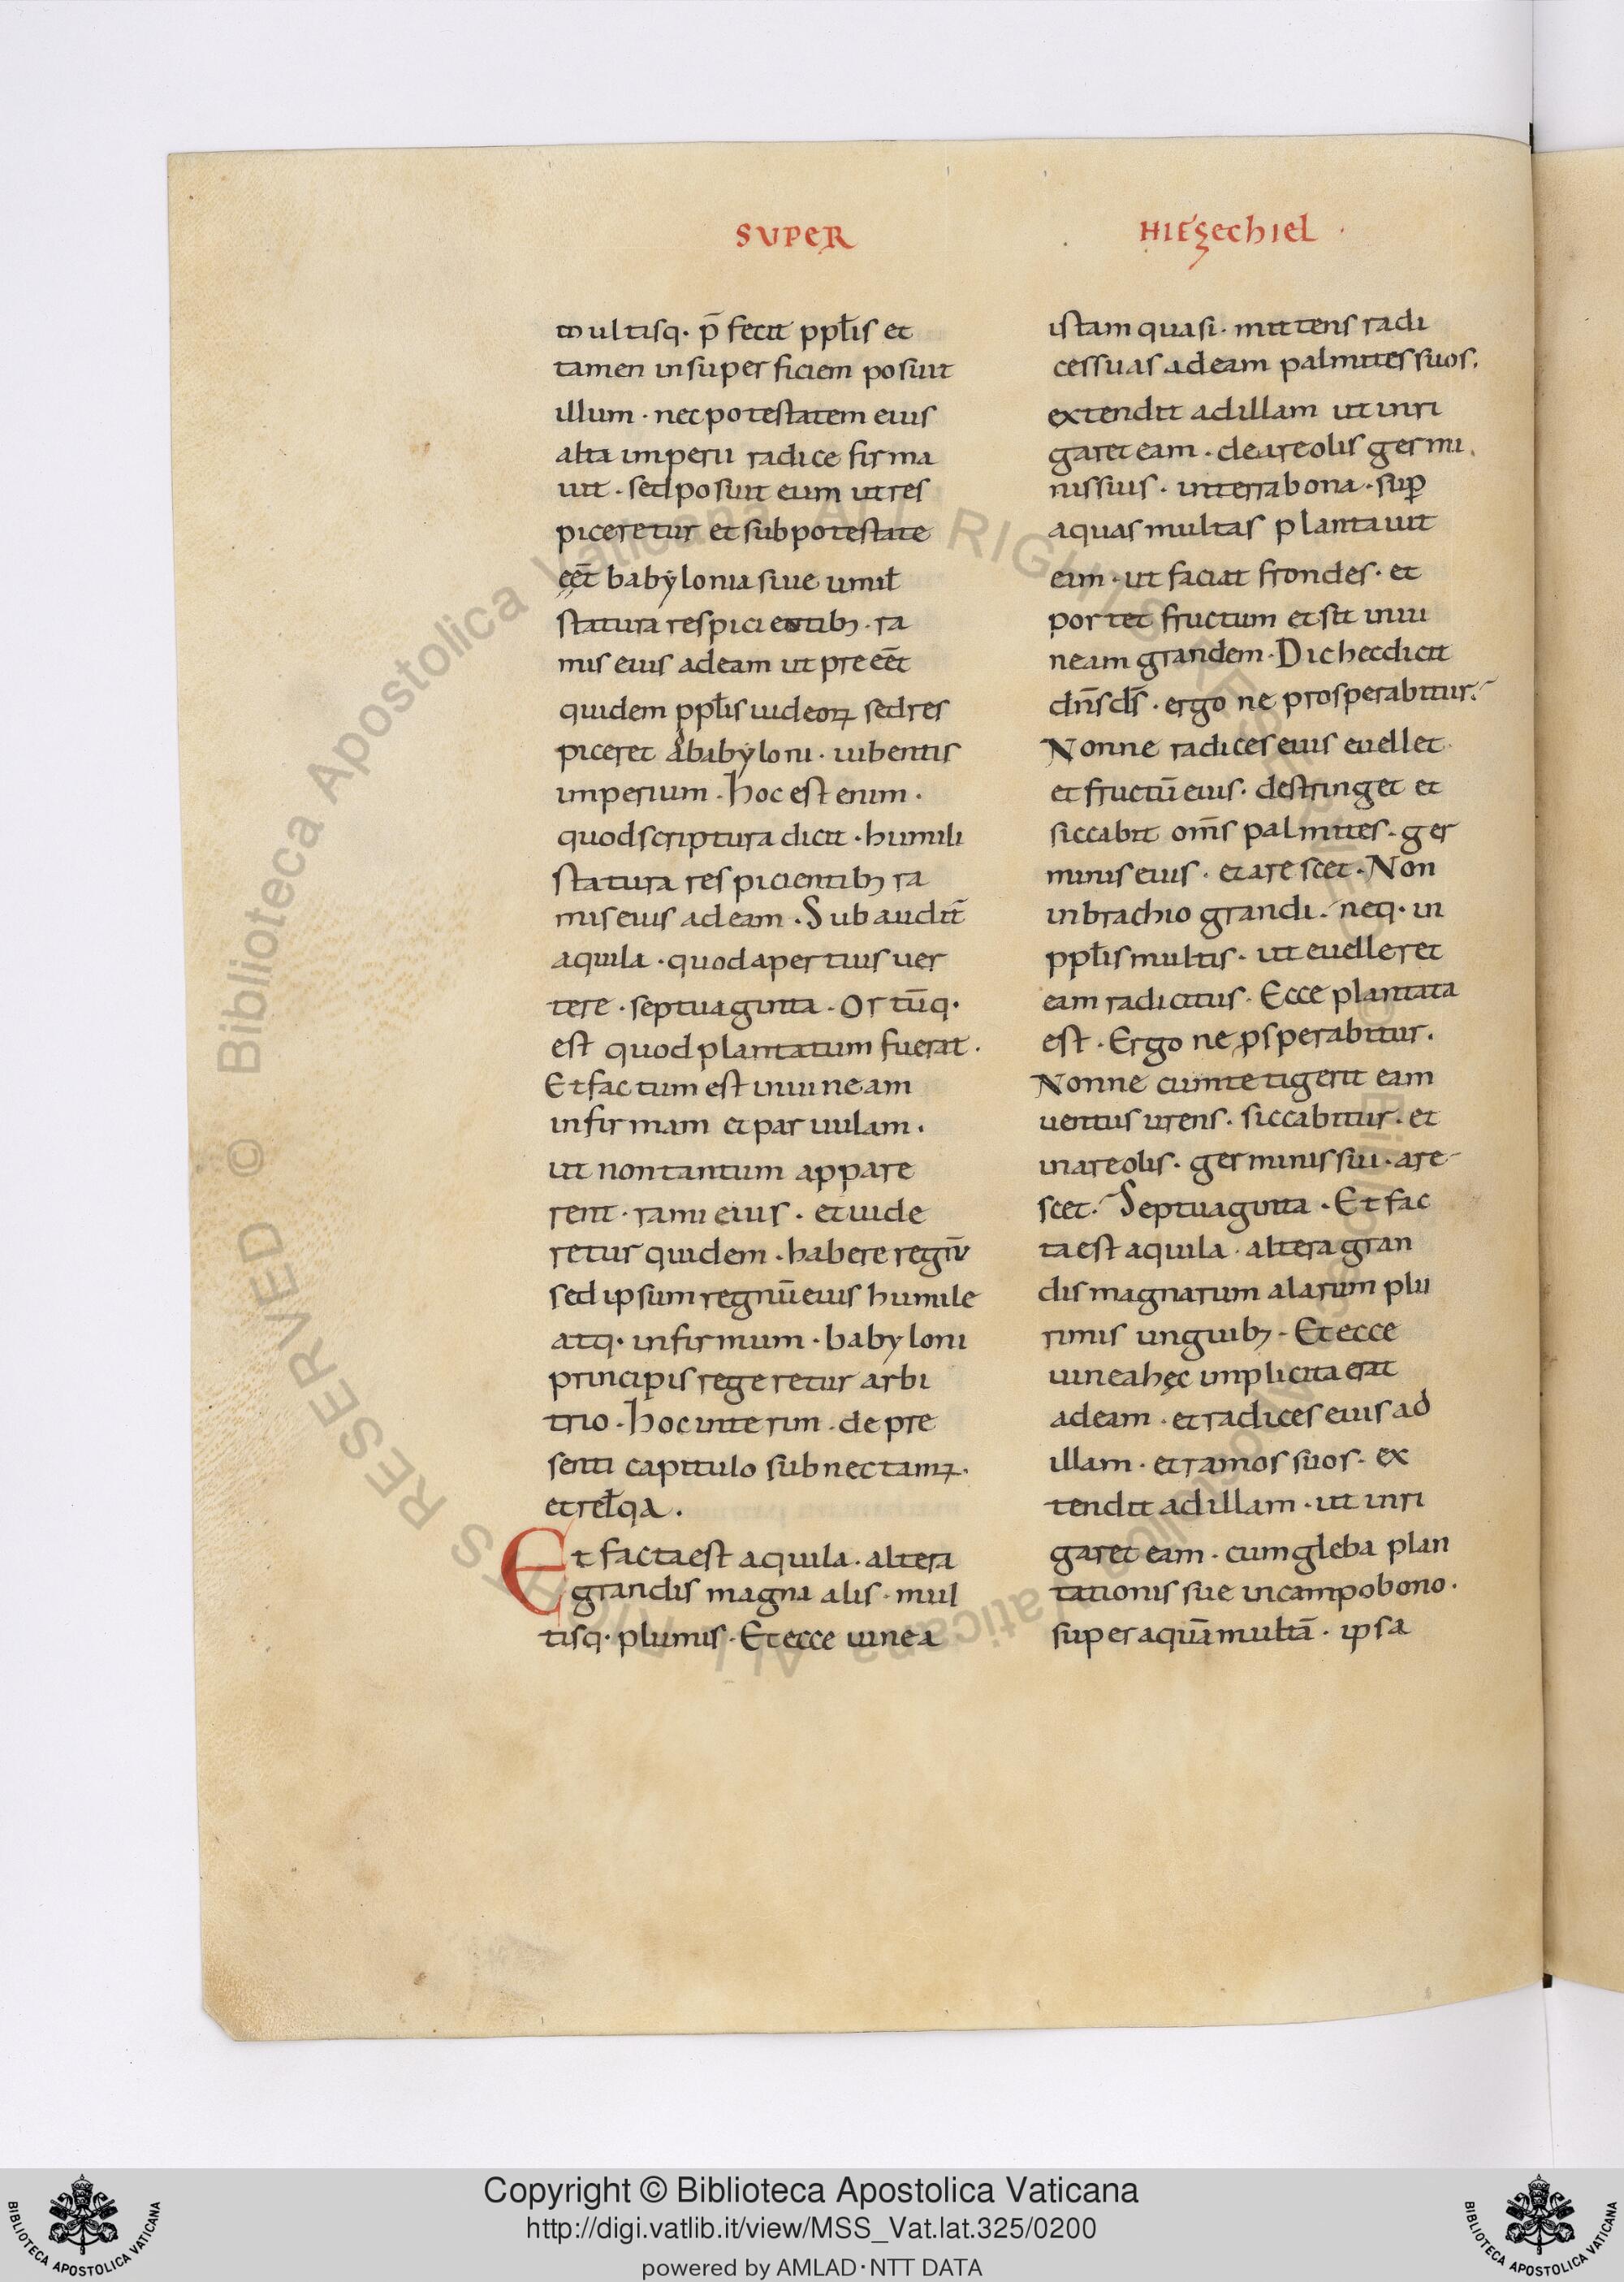 SUPER
HIEZechiel
multisq· p̄ fecit ppl̄is et
tamen insuperficiem posuit
illum · nec potestatem eius
alta imperii radice firma
uit · sed posuit eum ut res
piceretur et sub potestate
eēt babẏlonia siue umil̄
statura respicientib; · ra
mis eius ad eam ut pre eēt
quidem ppl̄is iudeoꝝ sed res
piceret a babẏloni · iubentis
imperium · hoc est enim ·
quod scriptura dicit · humili
statura respicientib; ra
mis eius ad eam · Subaudit̄
aquila · quod apertius uer
tere · septuaginta · Ortūq·
est quod plantatum fuerat ·
Et factum est in uineam
infirmam et paruulam ·
ut non tantum appare
rent · rami eius · et uide
retur quidem · habere regnū
sed ipsum regnū eius humile
atq· infirmum · babyloni
principis regeretur arbi
trio · hoc interim · de pre
senti capitulo subnectamꝝ ·
et rel̄qa ·
Et facta est aquila · altera
grandis magna alis · mul
tisq· plumis · Et ecce uinea
istam quasi · mittens radi
ces suas ad eam palmites suos ·
extendit ad illam ut inri
garet eam · de areolis germi
nis suis · in terra bona · suꝑ
aquas multas plantauit
eam · ut faciat frondes · et
portet fructum et sit in ui
neam grandem · Dic hec dicit
dn̄s ds̄ · ergo ne prosperabitur ·
Nonne radices eius euellet
et fructū eius · destringet et
siccabit om̄s palmites · ger
minis eius · et arescet · Non
in brachio grandi · neq· in
ppl̄is multis · ut euelleret
eam radicitus · Ecce plantata
est · Ergo ne ꝓsperabitur ·
Nonne cum tetigerit eam
uentus urens · siccabitur · et
in areolis · germinis sui · are
scet · Septuaginta · Et fac
ta est aquila · altera gran
dis magnarum alarum plu
rimis unguib; · Et ecce
uinea hęc implicita erat
ad eam · et radices eius ad
illam · et ramos suos · ex
tendit ad illam · ut inri
garet eam · cum gleba plan
tationis sue in campo bono ·
super aquā multā · ipsa
Copyright © Biblioteca Apostolica Vaticana
http://digi.vatlib.it/view/MSS_Vat.lat.325/0200
powered by AMLAD·NTT DATA